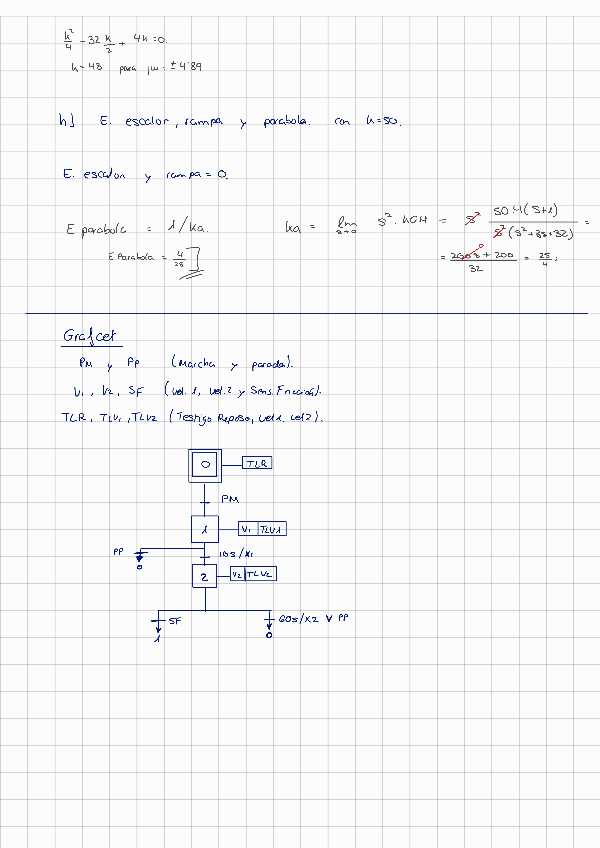 k²/4 - 32 k/2 + 4k = 0.
k = 48 para jw = ± 4'89
h] E. escalon, rampa y parabola. con k=50.
E. escalon y rampa = 0.
E parabola = 1/ka. ka = lim s→0 s² · kGH = s² 50·4(s+1) / s²(s²+8s+32) =
E Parabola = 4/25 = 200s + 200 / 32 = 25/4 ;
Grafcet
PM y PP (Marcha y parada).
V1, V2, SF (vel. 1, vel. 2 y Sens. Fricción).
TLR, TLV1, TLV2 (Testigo Reposo, vel1, vel2).
0 TLR
PM
1 V1 TLV1
PP 10s/X1
0
2 V2 TLV2
SF 60s/X2 V PP
1 0